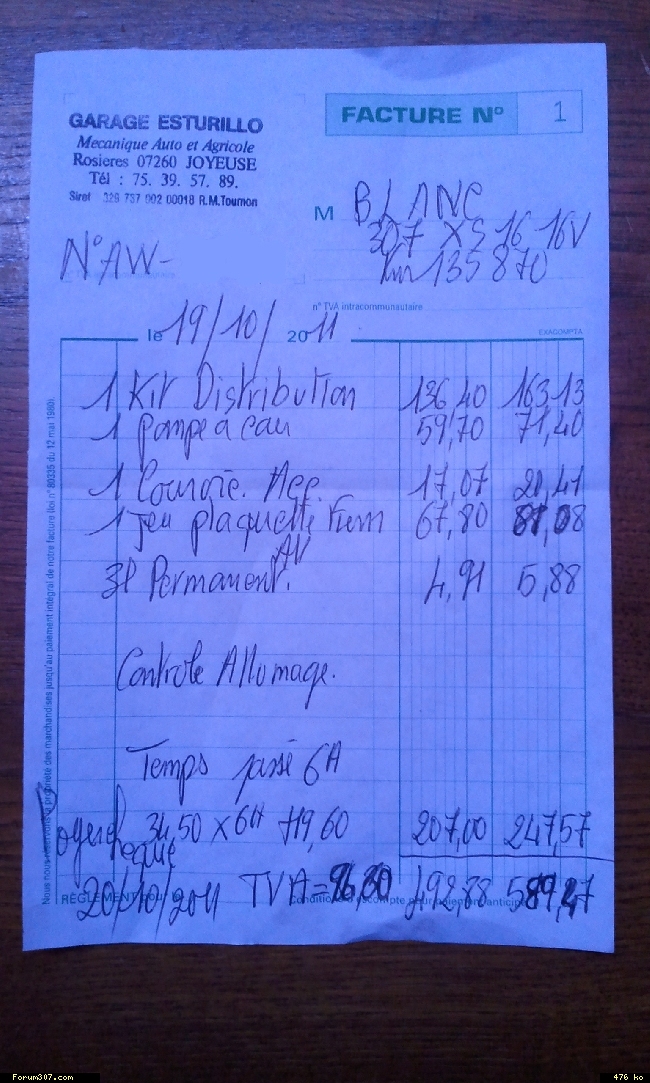 GARAGE ESTURILLO
Mecanique Auto et Agricole
Rosieres 07260 JOYEUSE
Tél : 75. 39. 57. 89.
Siret 329 737 002 00018 R.M.Tournon
FACTURE N° 1
M BLANC
307 XS 16 16V
Km 135 870
N° AW-
n° TVA intracommunautaire
le 19/10/2011
EXACOMPTA
1 Kit Distribution 136,40 163,13
1 pompe a eau 59,70 71,40
1 Courroie. Acc. 17,07 20,41
1 Jeu plaquette Frein 67,80 81,08
AV
3l Permanent. 4,91 5,88
Controle Allumage.
Temps passé 6H
34,50 x 6H +19,60 207,00 247,57
Cheque
20/10/2011 TVA = 96,30 492,88
RÈGLEMENT
Nous nous réservons la propriété des marchandises jusqu'au paiement intégral de notre facture (loi n° 80335 du 12 mai 1980).
Forum307.com
476 ko